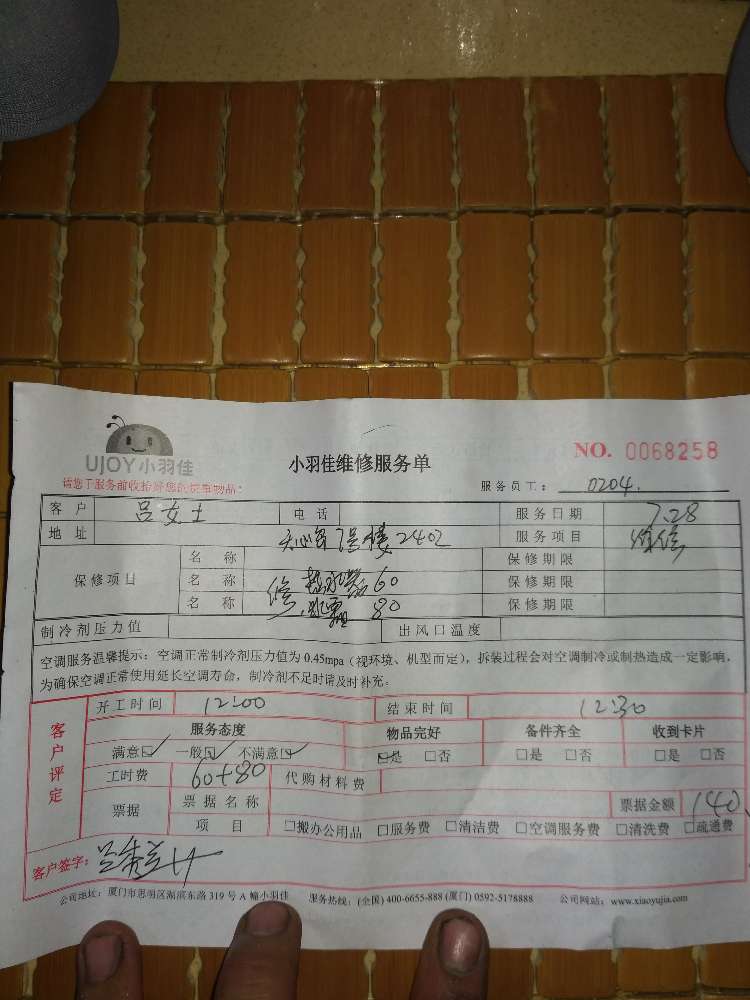 UJOY小羽佳
小羽佳维修服务单
NO. 0068258
请您于服务前收拾好您的贵重物品!
服务员工: 0204.
客户 吕女士 电话 服务日期 7.28
地址 7号楼2402 服务项目 维修
保修项目
名称 保修期限
名称 修 热水器 60 保修期限
名称 80 保修期限
制冷剂压力值 出风口温度
空调服务温馨提示: 空调正常制冷剂压力值为 0.45mpa (视环境、机型而定), 拆装过程会对空调制冷或制热造成一定影响,
为确保空调正常使用延长空调寿命, 制冷剂不足时请及时补充。
客户评定
开工时间 12:00 结束时间 12:30
服务态度 物品完好 备件齐全 收到卡片
满意☑ 一般☑ 不满意☑ ☑是 □否 □是 □否 □是 □否
工时费 60+80 代购材料费
票据 票据名称 票据金额 140
项目 □搬办公用品 □服务费 □清洁费 □空调服务费 □清洗费 □疏通费
客户签字:
公司地址: 厦门市思明区湖滨东路 319 号 A 幢小羽佳 服务热线: (全国) 400-6655-888 (厦门) 0592-5178888 公司网站: www.xiaoyujia.com